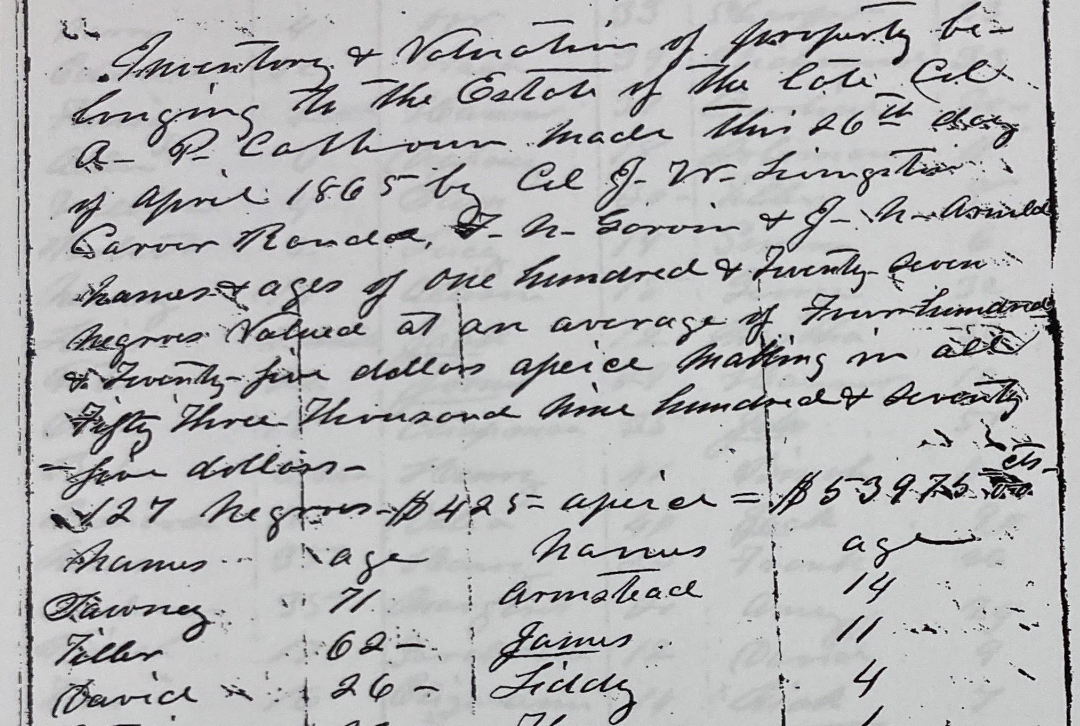 Inventory & Valuation of property be-
longing to the Estate of the late Col
A. P. Calhoun made this 26th day
of April 1865 by Col J. W. Livingston
Carver Randal, F. N. Garvin & J. N. Arnold
names & ages of one hundred & Twenty Seven
negroes Valued at an average of Four hundred
& Twenty-five dollars apeice making in all
Fifty Three Thousand nine hundred & Seventy
-five dollars-
127 negroes-$425- apeice = $53975 cts
names age names age
Tawney 71 Armstead 14
Tiller 62- James 11
David 26- Liddy 4